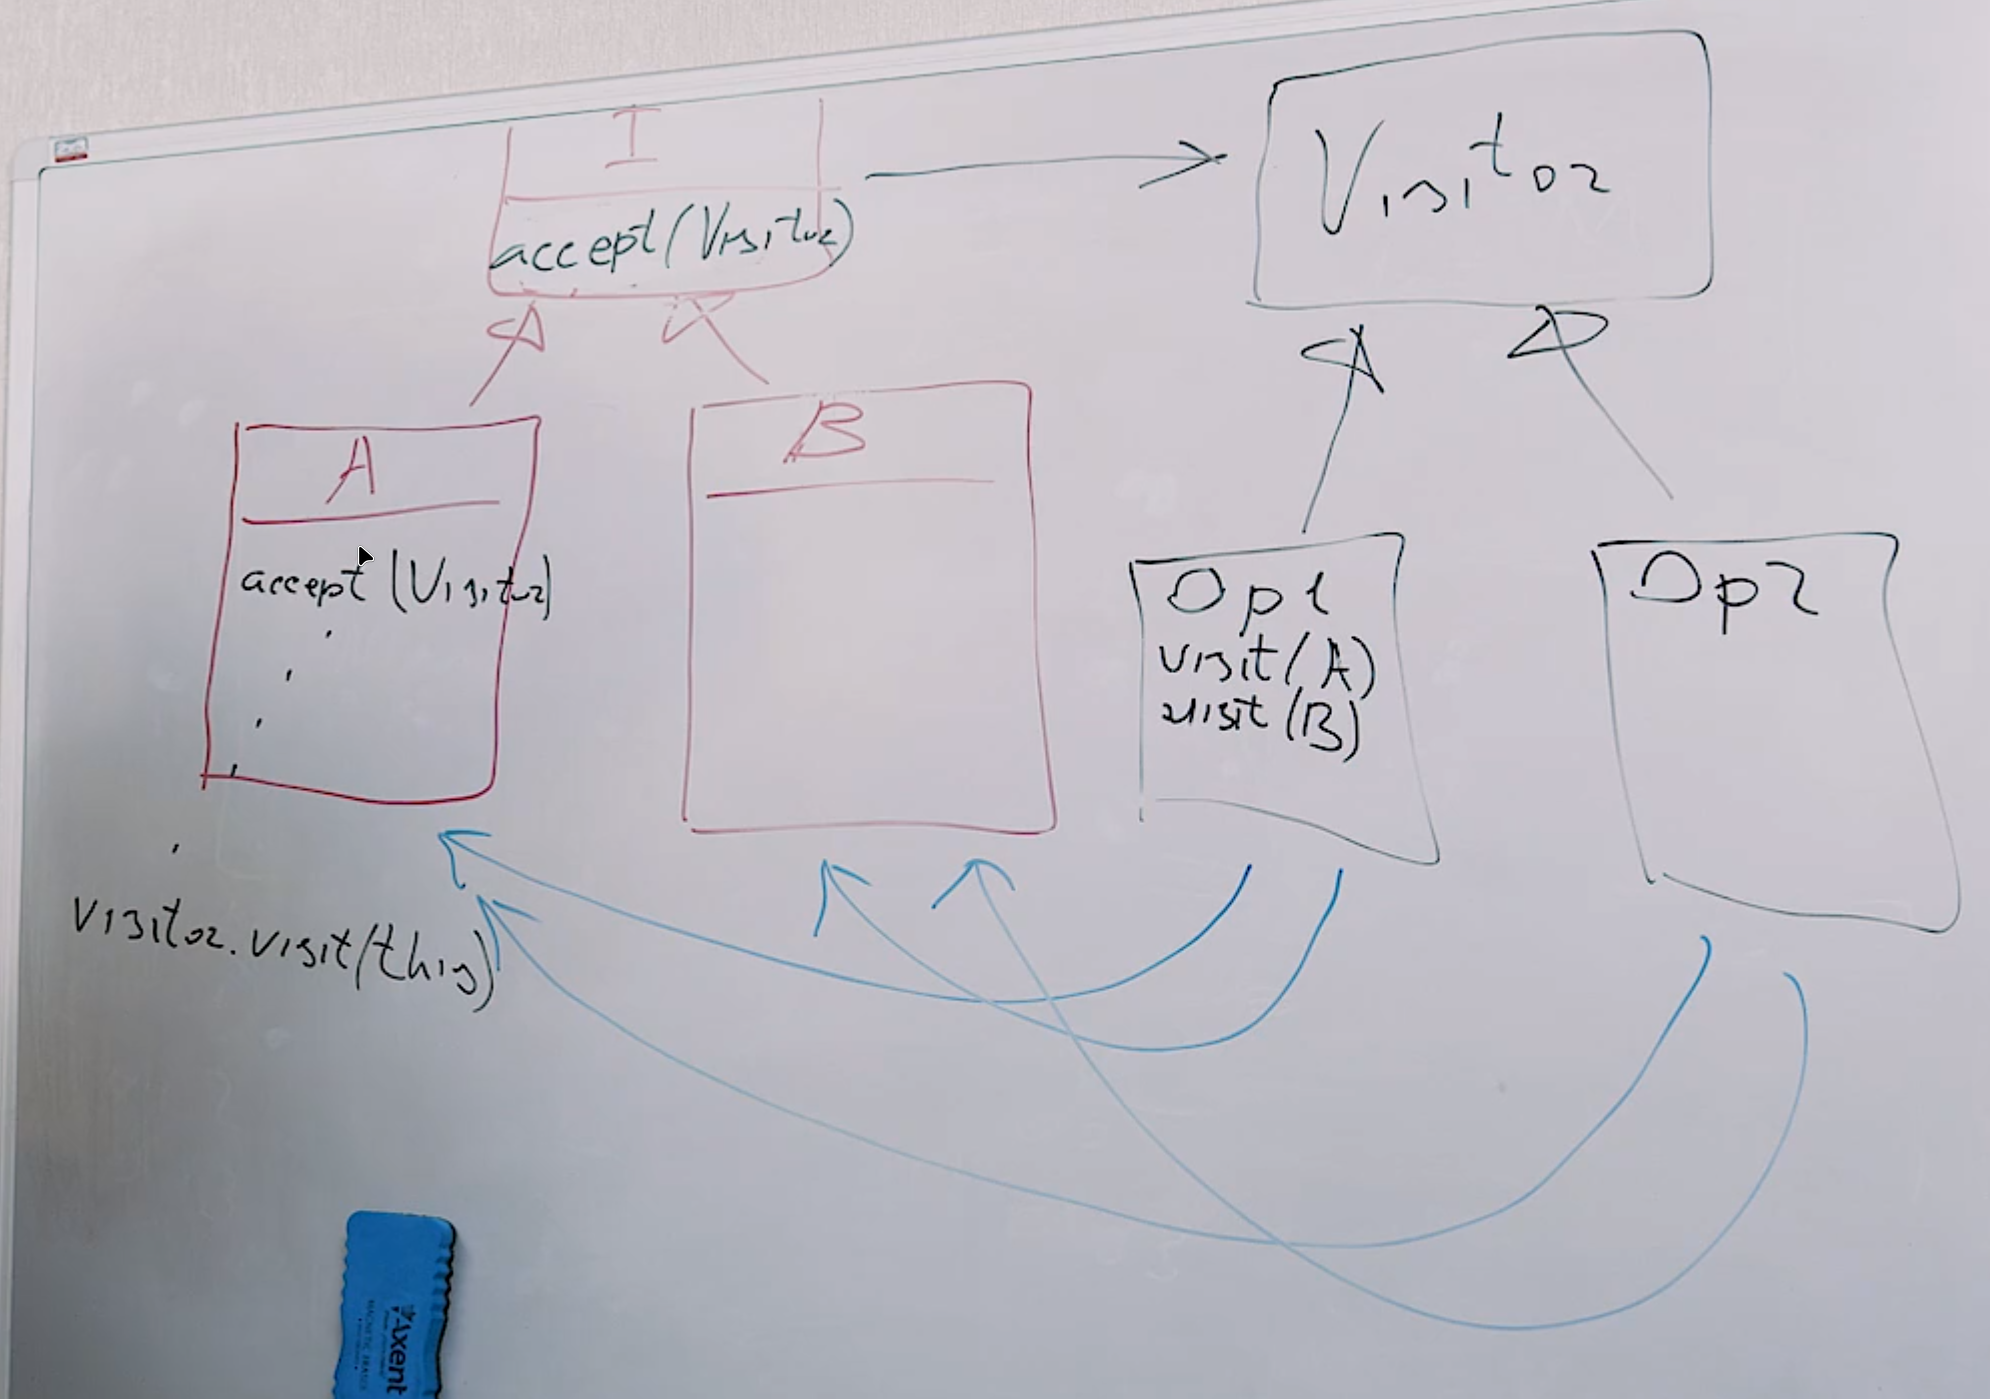 I
accept(Visitor)
Visitor
A
accept(Visitor)
B
Op1
visit(A)
visit(B)
Op2
visitor.visit(this)
Axent
MAGNETIC ERASER